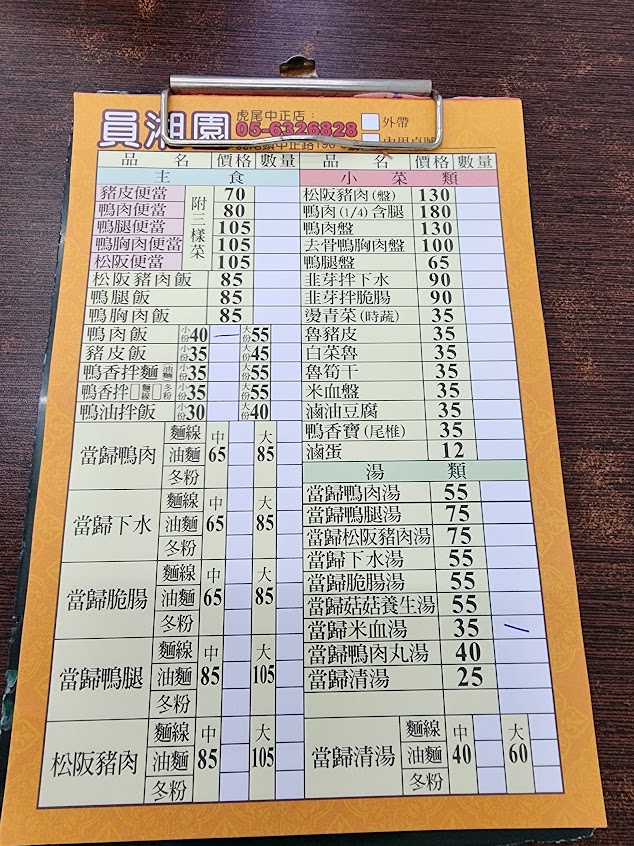 員湘園 虎尾中正店：
05-6326828 外帶
品名 價格 數量
主食
豬皮便當 70
鴨肉便當 80
鴨腿便當 105
鴨胸肉便當 105
松阪便當 105
附三樣菜
松阪豬肉飯 85
鴨腿飯 85
鴨胸肉飯 85
鴨肉飯 小份40 大份55
豬皮飯 小份35 大份45
鴨香拌麵 油麵 小份35 大份55
鴨香拌 麵線 冬粉 小份35 大份55
鴨油拌飯 小份30 大份40
當歸鴨肉 麵線 油麵 冬粉 中65 大85
當歸下水 麵線 油麵 冬粉 中65 大85
當歸脆腸 麵線 油麵 冬粉 中65 大85
當歸鴨腿 麵線 油麵 冬粉 中85 大105
松阪豬肉 麵線 油麵 冬粉 中85 大105
品名 價格 數量
小菜類
松阪豬肉(盤) 130
鴨肉(1/4)含腿 180
鴨肉盤 130
去骨鴨胸肉盤 100
鴨腿盤 65
韭芽拌下水 90
韭芽拌脆腸 90
燙青菜(時蔬) 35
魯豬皮 35
白菜魯 35
魯筍干 35
米血盤 35
滷油豆腐 35
鴨香寶(尾椎) 35
滷蛋 12
湯類
當歸鴨肉湯 55
當歸鴨腿湯 75
當歸松阪豬肉湯 75
當歸下水湯 55
當歸脆腸湯 55
當歸菇菇養生湯 55
當歸米血湯 35
當歸鴨肉丸湯 40
當歸清湯 25
當歸清湯 麵線 油麵 冬粉 中40 大60